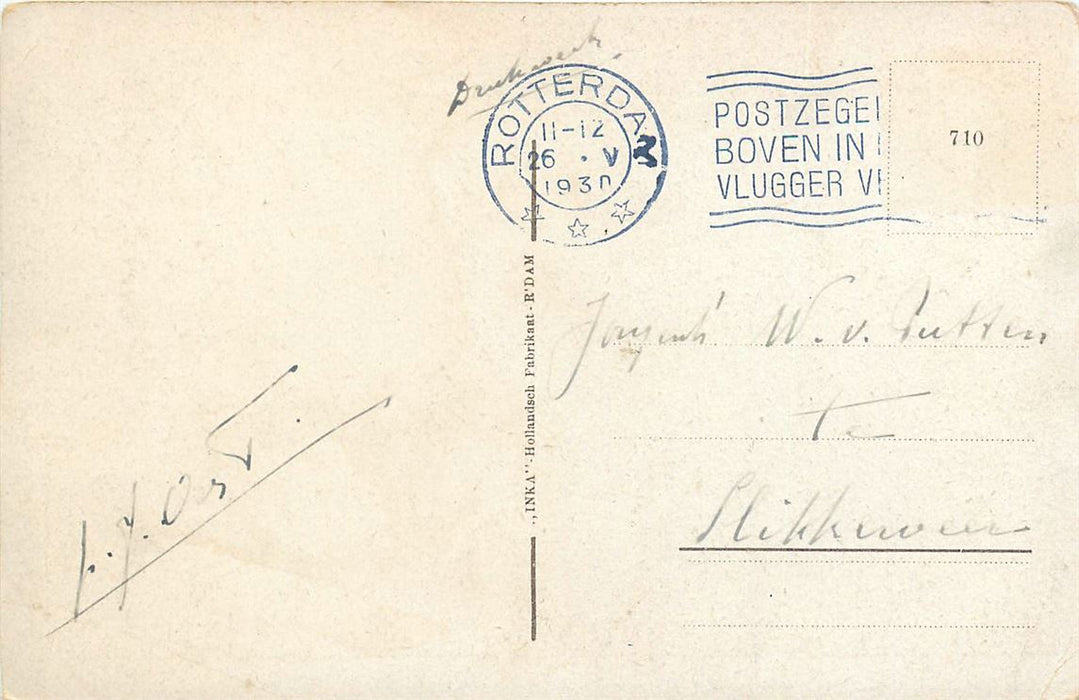 Drukwerk.
ROTTERDAM
11-12
26 . V
1930
3
POSTZEGEL
BOVEN IN
VLUGGER
710
„INKA”-Hollandsch Fabrikaat - R'DAM
W. v. Putten
Te
Slikkerveer